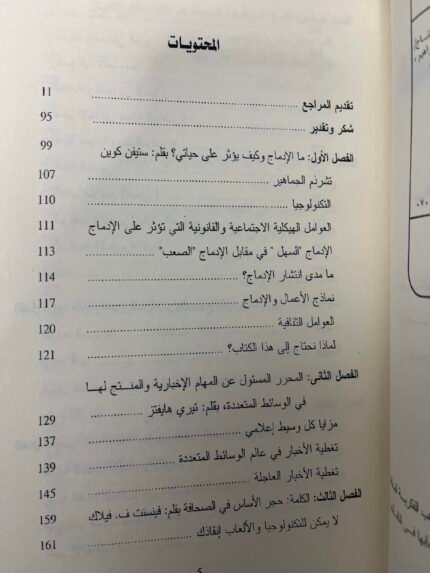 المحتويات
تقديم المراجع ........ 11
شكر وتقدير ........ 95
الفصل الأول: ما الإدماج وكيف يؤثر على حياتي؟ بقلم: ستيفن كوين 99
تشرذم الجماهير ........ 107
التكنولوجيا ........ 110
العوامل الهيكلية الاجتماعية والقانونية التي تؤثر على الإدماج 111
الإدماج "السهل" في مقابل الإدماج "الصعب" ........ 113
ما مدى انتشار الإدماج؟ ........ 114
نماذج الأعمال والإدماج ........ 117
العوامل الثقافية ........ 120
لماذا نحتاج إلى هذا الكتاب؟ ........ 121
الفصل الثانى: المحرر المسئول عن المهام الإخبارية والمنتج لهـا
في الوسائط المتعددة، بقلم: تيري هايفتز ........ 129
مزايا كل وسيط إعلامي ........ 137
تغطية الأخبار في عالم الوسائط المتعددة ........ 139
تغطية الأخبار العاجلة ........ 145
الفصل الثالث: الكلمة: حجر الأساس في الصحافة بقلم: فينسنت ف. فيلاك 159
لا يمكن للتكنولوجيا والألعاب إنقاذك ........ 161